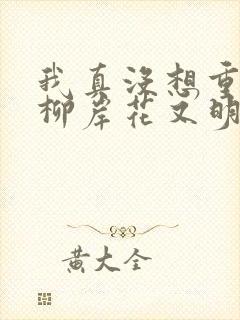 我真没想重
柳岸花又明
黄大全